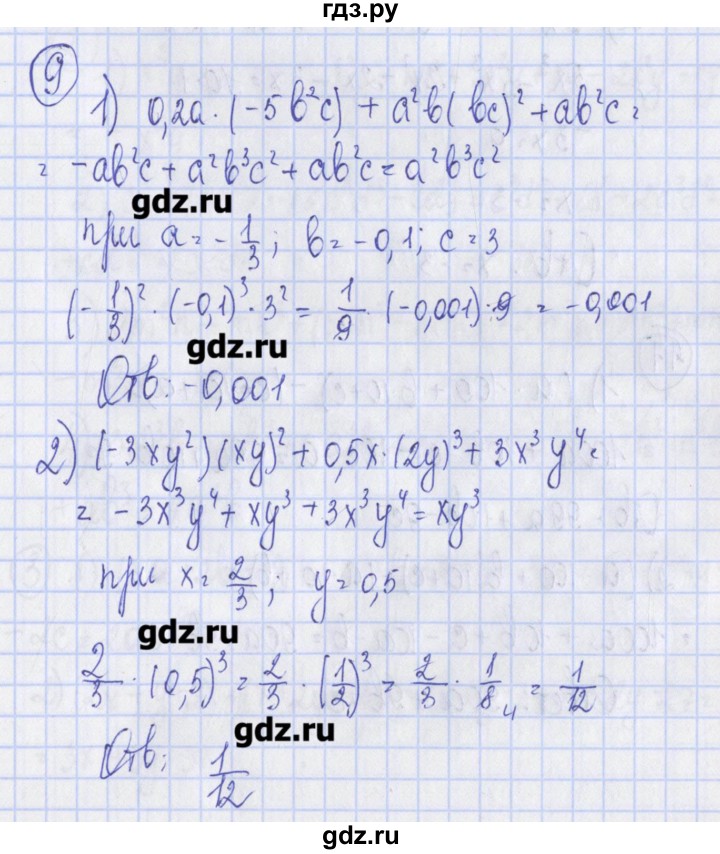 гдз.ру
9
1) 0,2a · (-5b²c) + a²b(bc)² + ab²c =
= -ab²c + a²b³c² + ab²c = a²b³c²
gdz.ru
при a = -1/3; b = -0,1; c = 3
(-1/3)² · (-0,1)³ · 3² = 1/9 · (-0,001) · 9 = -0,001
gdz.ru
Отв: -0,001
2) (-3xy²)(xy)² + 0,5x · (2y)³ + 3x³y⁴ =
= -3x³y⁴ + xy³ + 3x³y⁴ = xy³
при x = 2/3; y = 0,5
gdz.ru
2/3 · (0,5)³ = 2/3 · (1/2)³ = 2/3 · 1/8 4 = 1/12
gdz.ru
Отв: 1/12
gdz.ru